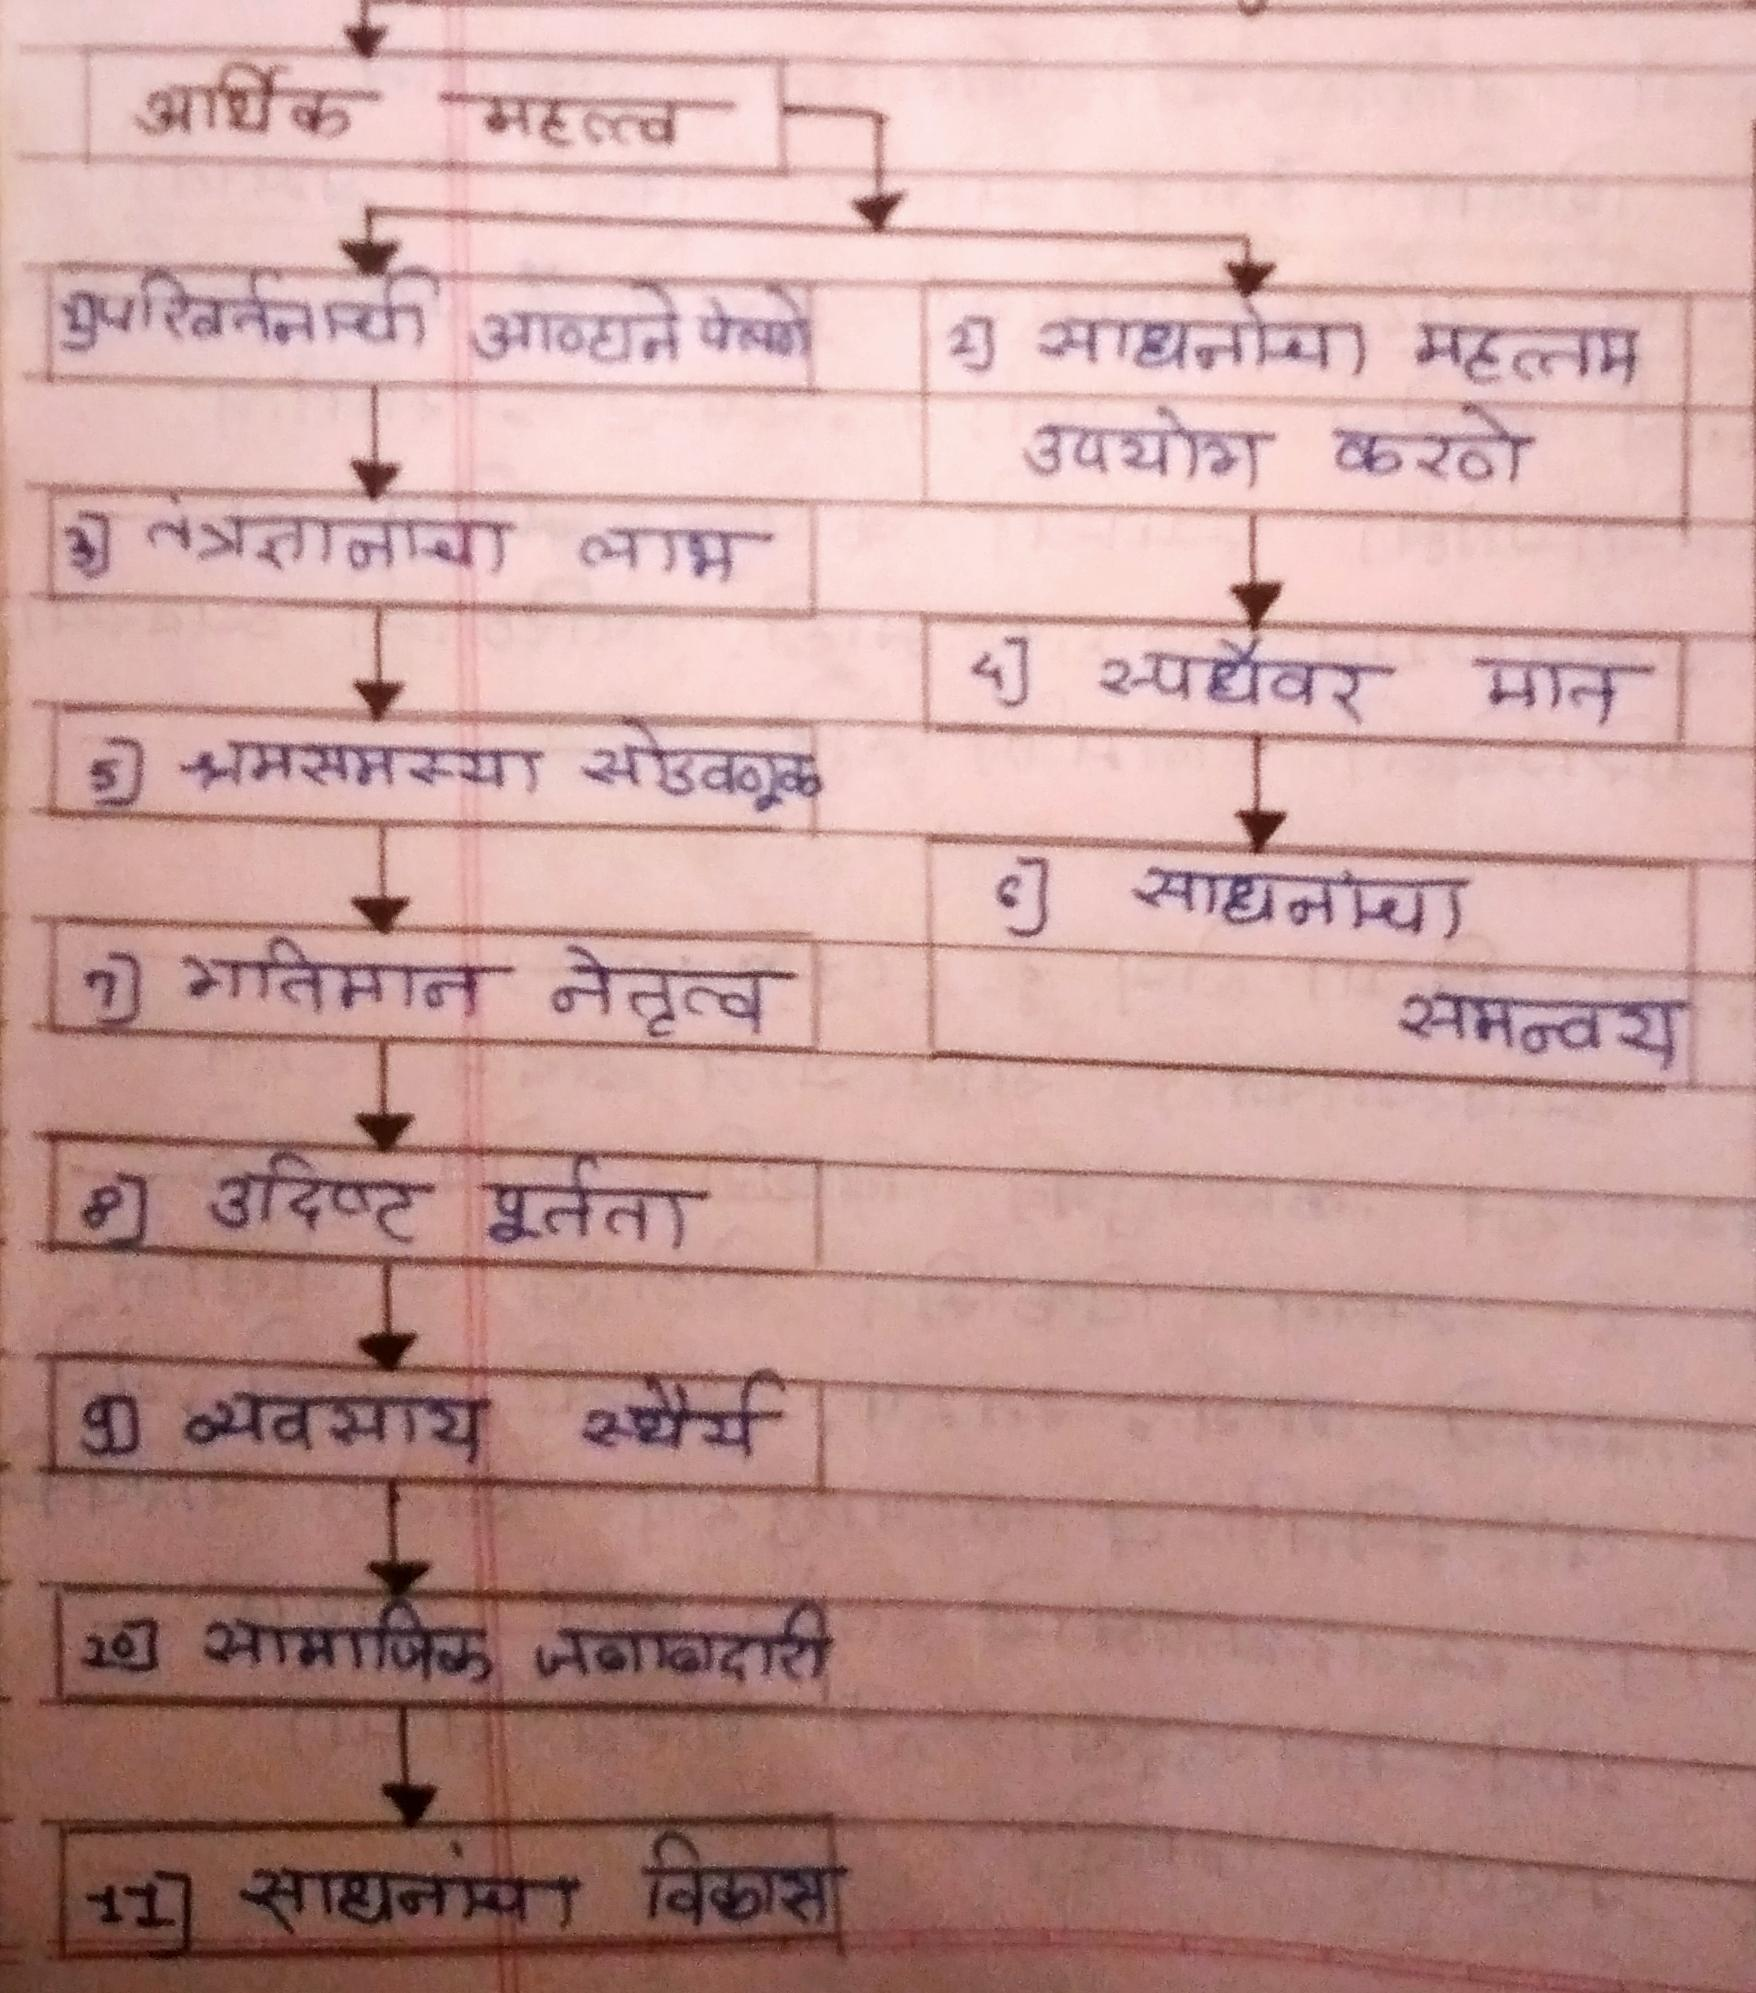 आर्थिक महत्त्व
1) परिवर्तनाची आव्हाने पेलणे
2) साधनांचा महत्तम
उपयोग करणे
3) तंत्रज्ञानाचा लाभ
4) स्पर्धेवर मात
5) श्रमसमस्या सोडवणूक
6) साधनांचा
समन्वय
7) गतिमान नेतृत्व
8) उदिष्ट पूर्तता
9) व्यवसाय स्थैर्य
10) सामाजिक जबाबदारी
11) साधनांचा विकास